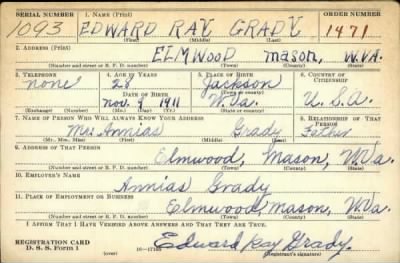 SERIAL NUMBER 1. NAME (Print) ORDER NUMBER
1093 EDWARD RAY GRADY 1471
(First) (Middle) (Last)
2. ADDRESS (Print)
ELMWOOD Mason, W.VA.
(Number and street or R. F. D. number) (Town) (County) (State)
3. TELEPHONE 4. AGE IN YEARS 5. PLACE OF BIRTH 6. COUNTRY OF CITIZENSHIP
none 28 Jackson
DATE OF BIRTH (Town or county)
Nov. 9 1911 W.Va. U.S.A.
(Exchange) (Number) (Mo.) (Day) (Yr.) (State or country)
7. NAME OF PERSON WHO WILL ALWAYS KNOW YOUR ADDRESS 8. RELATIONSHIP OF THAT PERSON
Annias Grady Father
(Mr., Mrs., Miss) (First) (Middle) (Last)
9. ADDRESS OF THAT PERSON
Elmwood, Mason, W.Va.
(Number and street or R. F. D. number) (Town) (County) (State)
10. EMPLOYER'S NAME
Annias Grady
11. PLACE OF EMPLOYMENT OR BUSINESS
Elmwood, Mason, W.Va.
(Number and street or R. F. D. number) (Town) (County) (State)
I AFFIRM THAT I HAVE VERIFIED ABOVE ANSWERS AND THAT THEY ARE TRUE.
REGISTRATION CARD
D. S. S. Form 1 (over) Edward Ray Grady.
(Registrant's signature)